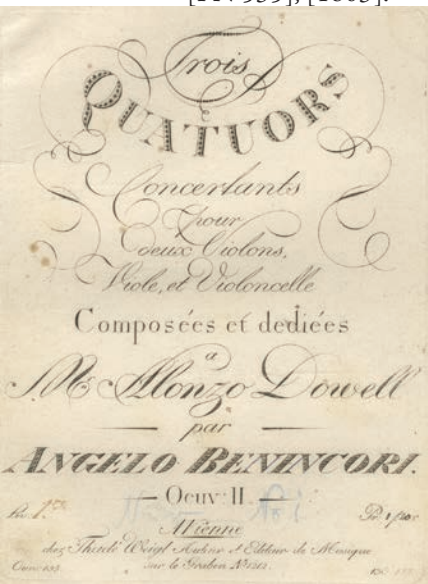 Trois
QUATUORS
Concertants
pour
deux Violons,
Viole, et Violoncelle
Composées et dediées
a
Mr. Alonzo Dowell
par
ANGELO BENINCORI.
Oeuv: II
Liv. 1.re
à Vienne
chez Thadé Weigl Auteur et Editeur de Musique
sur le Graben N° 1212